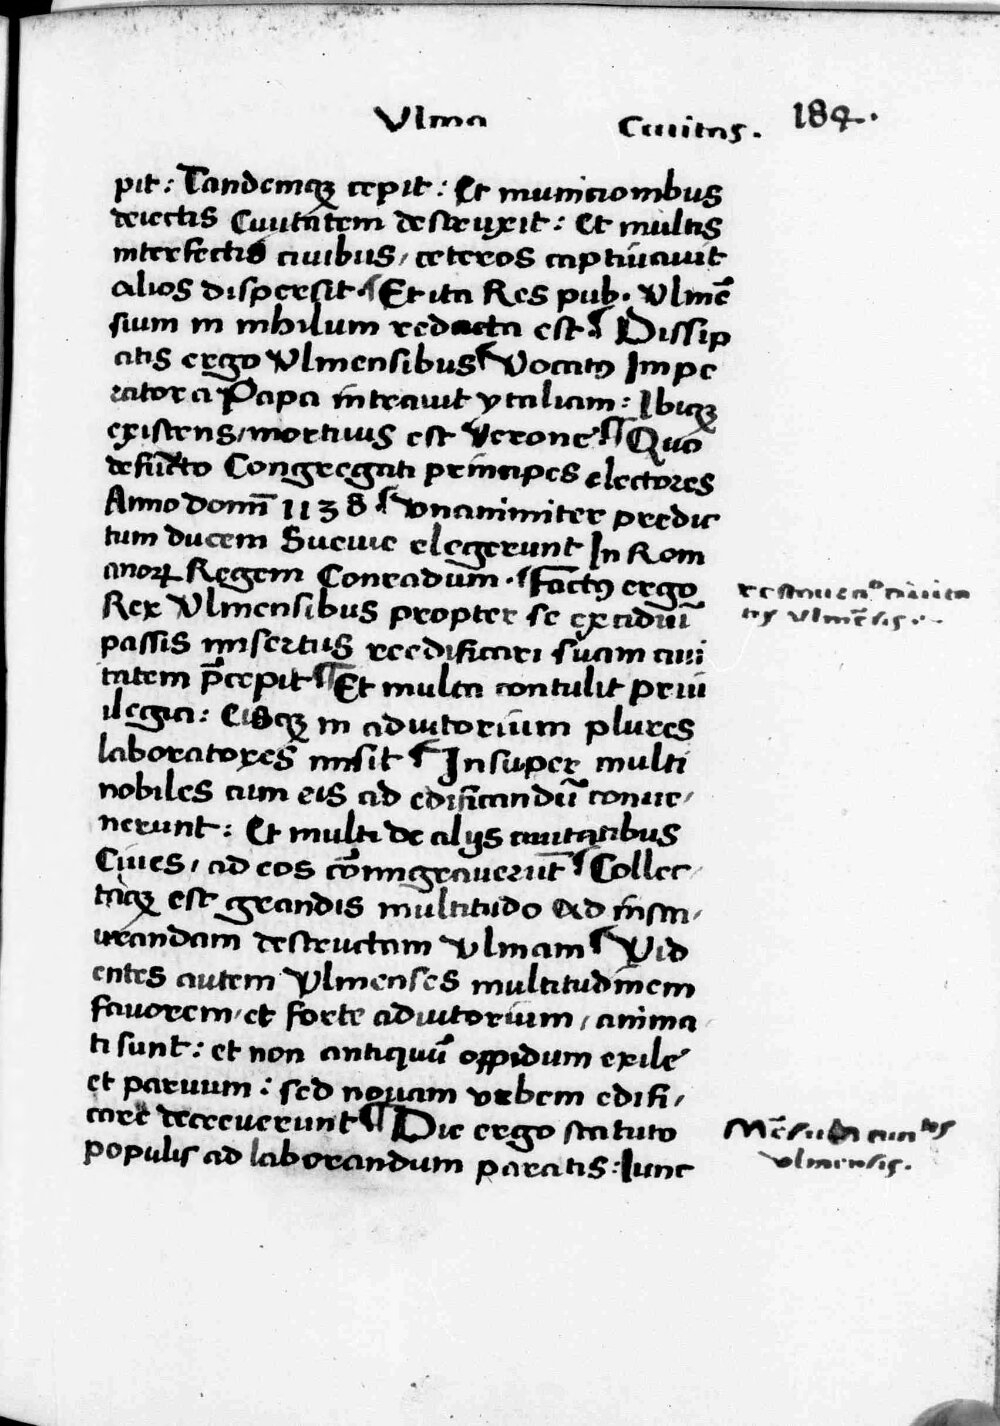 Vlma Ciuitas. 184.
pit: Tandemqꝫ cepit: Et municionibus
deiectis Ciuitatem destruxit: Et multis
interfectis ciuibus, ceteros captiuauit
alios dispersit. Et ita Res pub. Vlmē
sium in nihilum redacta est. Dissip
atis ergo Vlmensibus Vocatꝰ Impe
rator a Papa intrauit ytaliam: Ibiqꝫ
existens, mortuus est Verone Quo
defūcto Congregati principes electores
Anno domī 1138. Vnanimiter predic
tum ducem Sueuie elegerunt In Rom
anoꝝ Regem Conradum. Factꝰ ergo
Rex Vlmensibus propter se excidiū
passis misertus reedificari suam ciui
tatem p̄cepit Et multa contulit priui
ilegia: Eisqꝫ in adiutorium plures
laboratores misit Insuper multi
nobiles cum eis ad edificandū conue,
nerunt: Et multi de alijs ciuitatibus
Ciues, ad eos cōmigrauerūt Collec,
taqꝫ est grandis multitudo Ad insta,
urandam destructam Vlmam Vid
entes autem Vlmenses multitudinem
fauorem, et forte adiutorium, anima
ti sunt: et non antiquū oppidum exile
et paruum: sed nouam vrbem edifi,
care decreuerunt Die ergo statuto
populis ad laborandum paratis: Iunc
restauraᵒ ciuita
tis vlmēsis.
Mēsura ciuitatis
vlmensis.